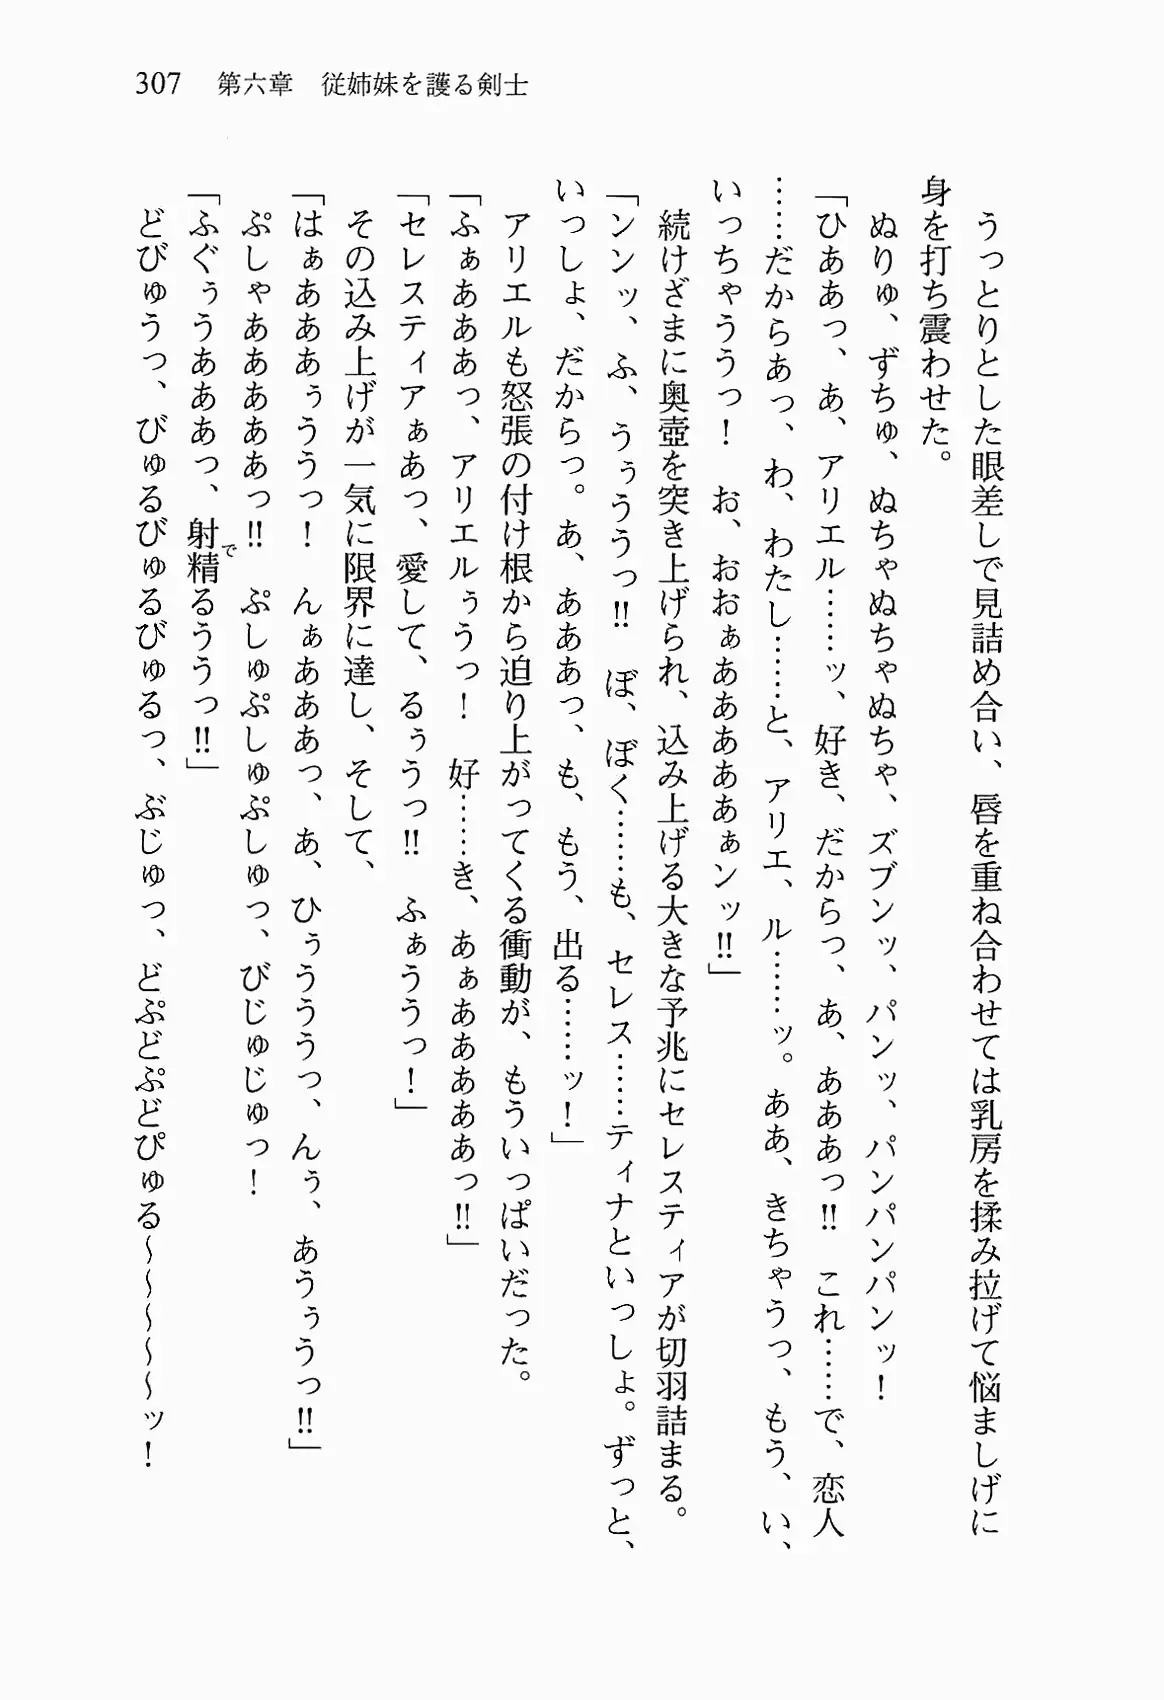 307　第六章　従姉妹を護る剣士
　うっとりとした眼差しで見詰め合い、唇を重ね合わせては乳房を揉み拉げて悩ましげに
身を打ち震わせた。
　ぬりゅ、ずちゅ、ぬちゃぬちゃぬちゃ、ズブンッ、パンッ、パンパンパンッ！
「ひああっ、あ、アリエル……ッ、好き、だからっ、あ、あああっ‼　これ……で、恋人
……だからあっ、わ、わたし……と、アリエ、ル……ッ。ああ、きちゃうっ、もう、い、
いっちゃううっ！　お、おおぁあああああぁンッ‼」
　続けざまに奥壺を突き上げられ、込み上げる大きな予兆にセレスティアが切羽詰まる。
「ンンッ、ふ、うぅううっ‼　ぼ、ぼく……も、セレス……ティナといっしょ。ずっと、
いっしょ、だからっ。あ、あああっ、も、もう、出る……ッ！」
　アリエルも怒張の付け根から迫り上がってくる衝動が、もういっぱいだった。
「ふぁあああっ、アリエルぅうっ！　好……き、あぁあああああっ‼」
「セレスティアぁあっ、愛して、るぅうっ‼　ふぁううっ！」
　その込み上げが一気に限界に達し、そして、
「はぁあああぅううっ！　んぁあああっ、あ、ひぅうううっ、んぅ、あうぅうっ‼」
　ぷしゃああああっ‼　ぷしゅぷしゅぷしゅっ、びじゅじゅっ！
「ふぐぅうあああっ、射精でるううっ‼」
　どびゅうっ、びゅるびゅるびゅるっ、ぶじゅっ、どぷどぷどぴゅる～～～～～ッ！